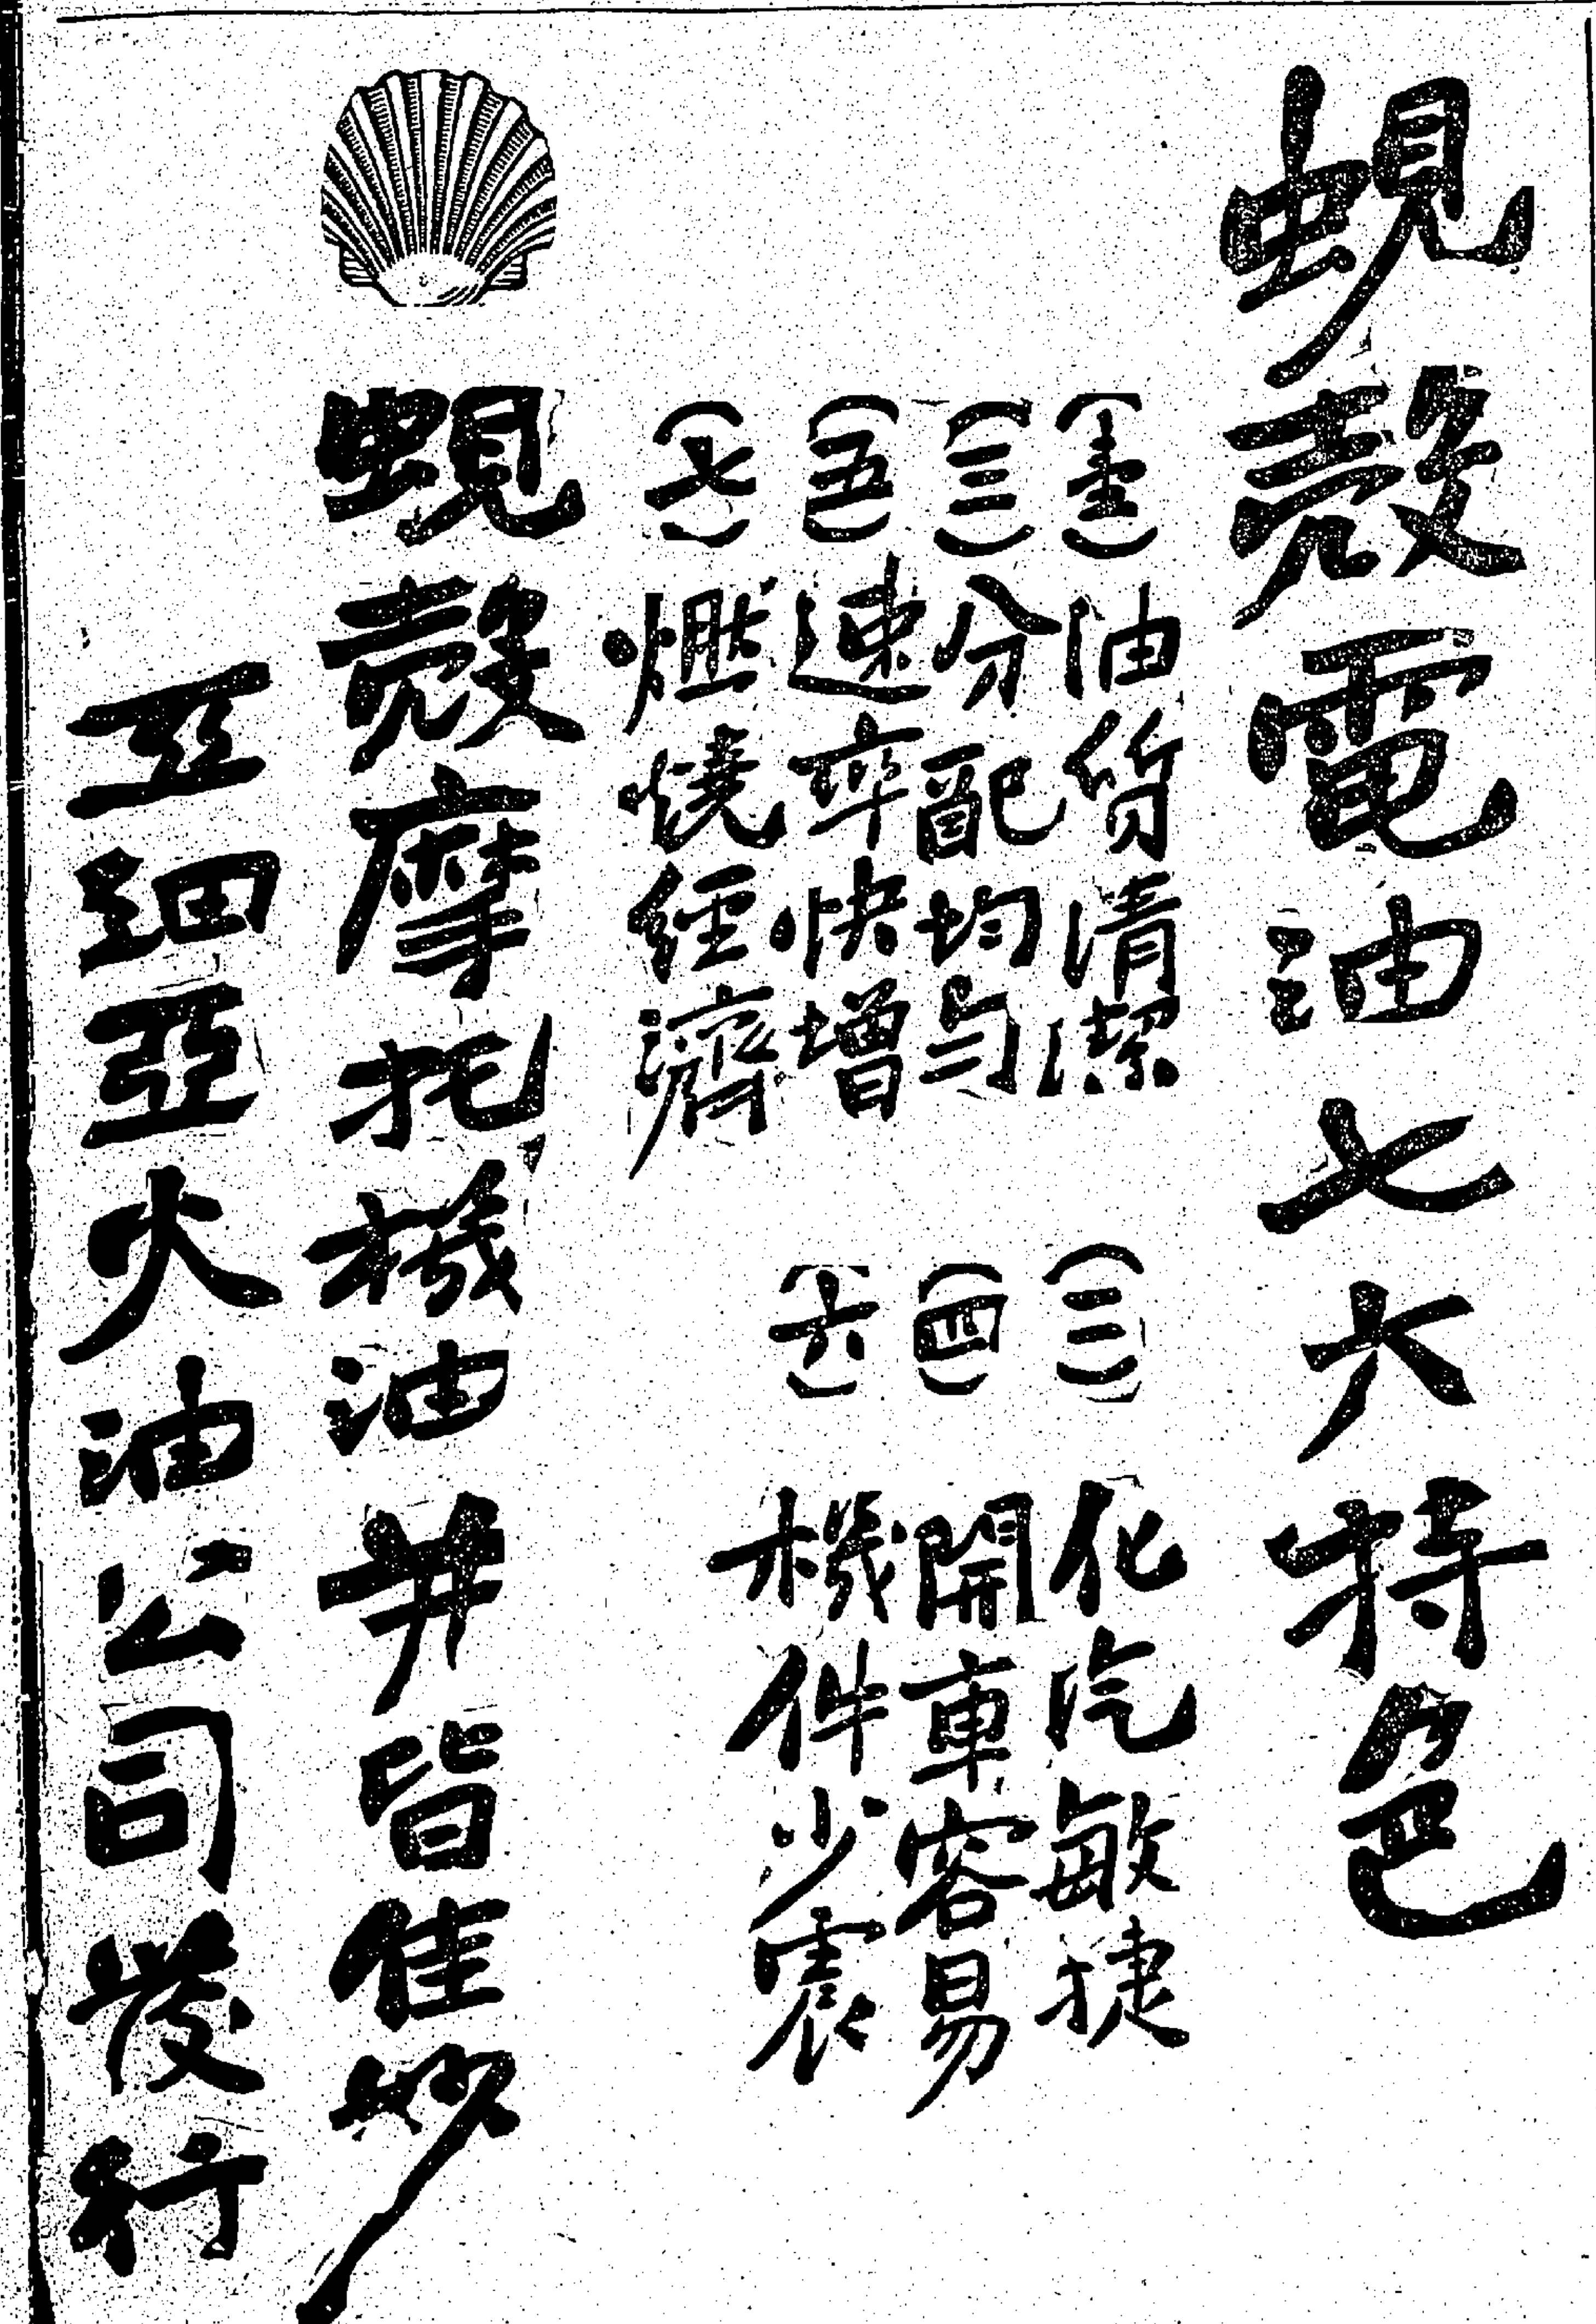 蜆殼電油七大特色
(壹)油質清潔
(二)化汽敏捷
(三)分配均勻
(四)開車容易
(五)速率快增
(六)機件少震
(七)燃燒經濟
蜆殼摩托機油并皆佳妙
亞細亞火油公司發行